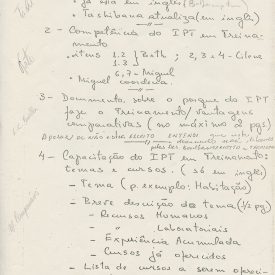 • já está em inglês (B
• Tachibana atualiza (em inglês)
2 - Competência do IPT em Treina-
mento
• itens 1.2 } Beth ; 2, 3 e 4 - Cilene
1.3
6, 7 - Miguel
• Miguel coordena.
3 - Documento, sobre o porque do IPT
fazer o Treinamento / Vantagens
comparativas (no máximo 2 pgs)
APESAR DE NÃO ESTAR ESCRITO ENTENDI que este
documento não
4 - Capacitação do IPT em Treinamento:
temas e cursos. (só em inglês)
- Tema (p. exemplo: Habitação)
- Breve descrição do tema (1/2 pg)
- Recursos Humanos
- " Laboratoriais
- Experiência Acumulada
- Cursos já oferecidos
- Lista de cursos a serem ofereci-